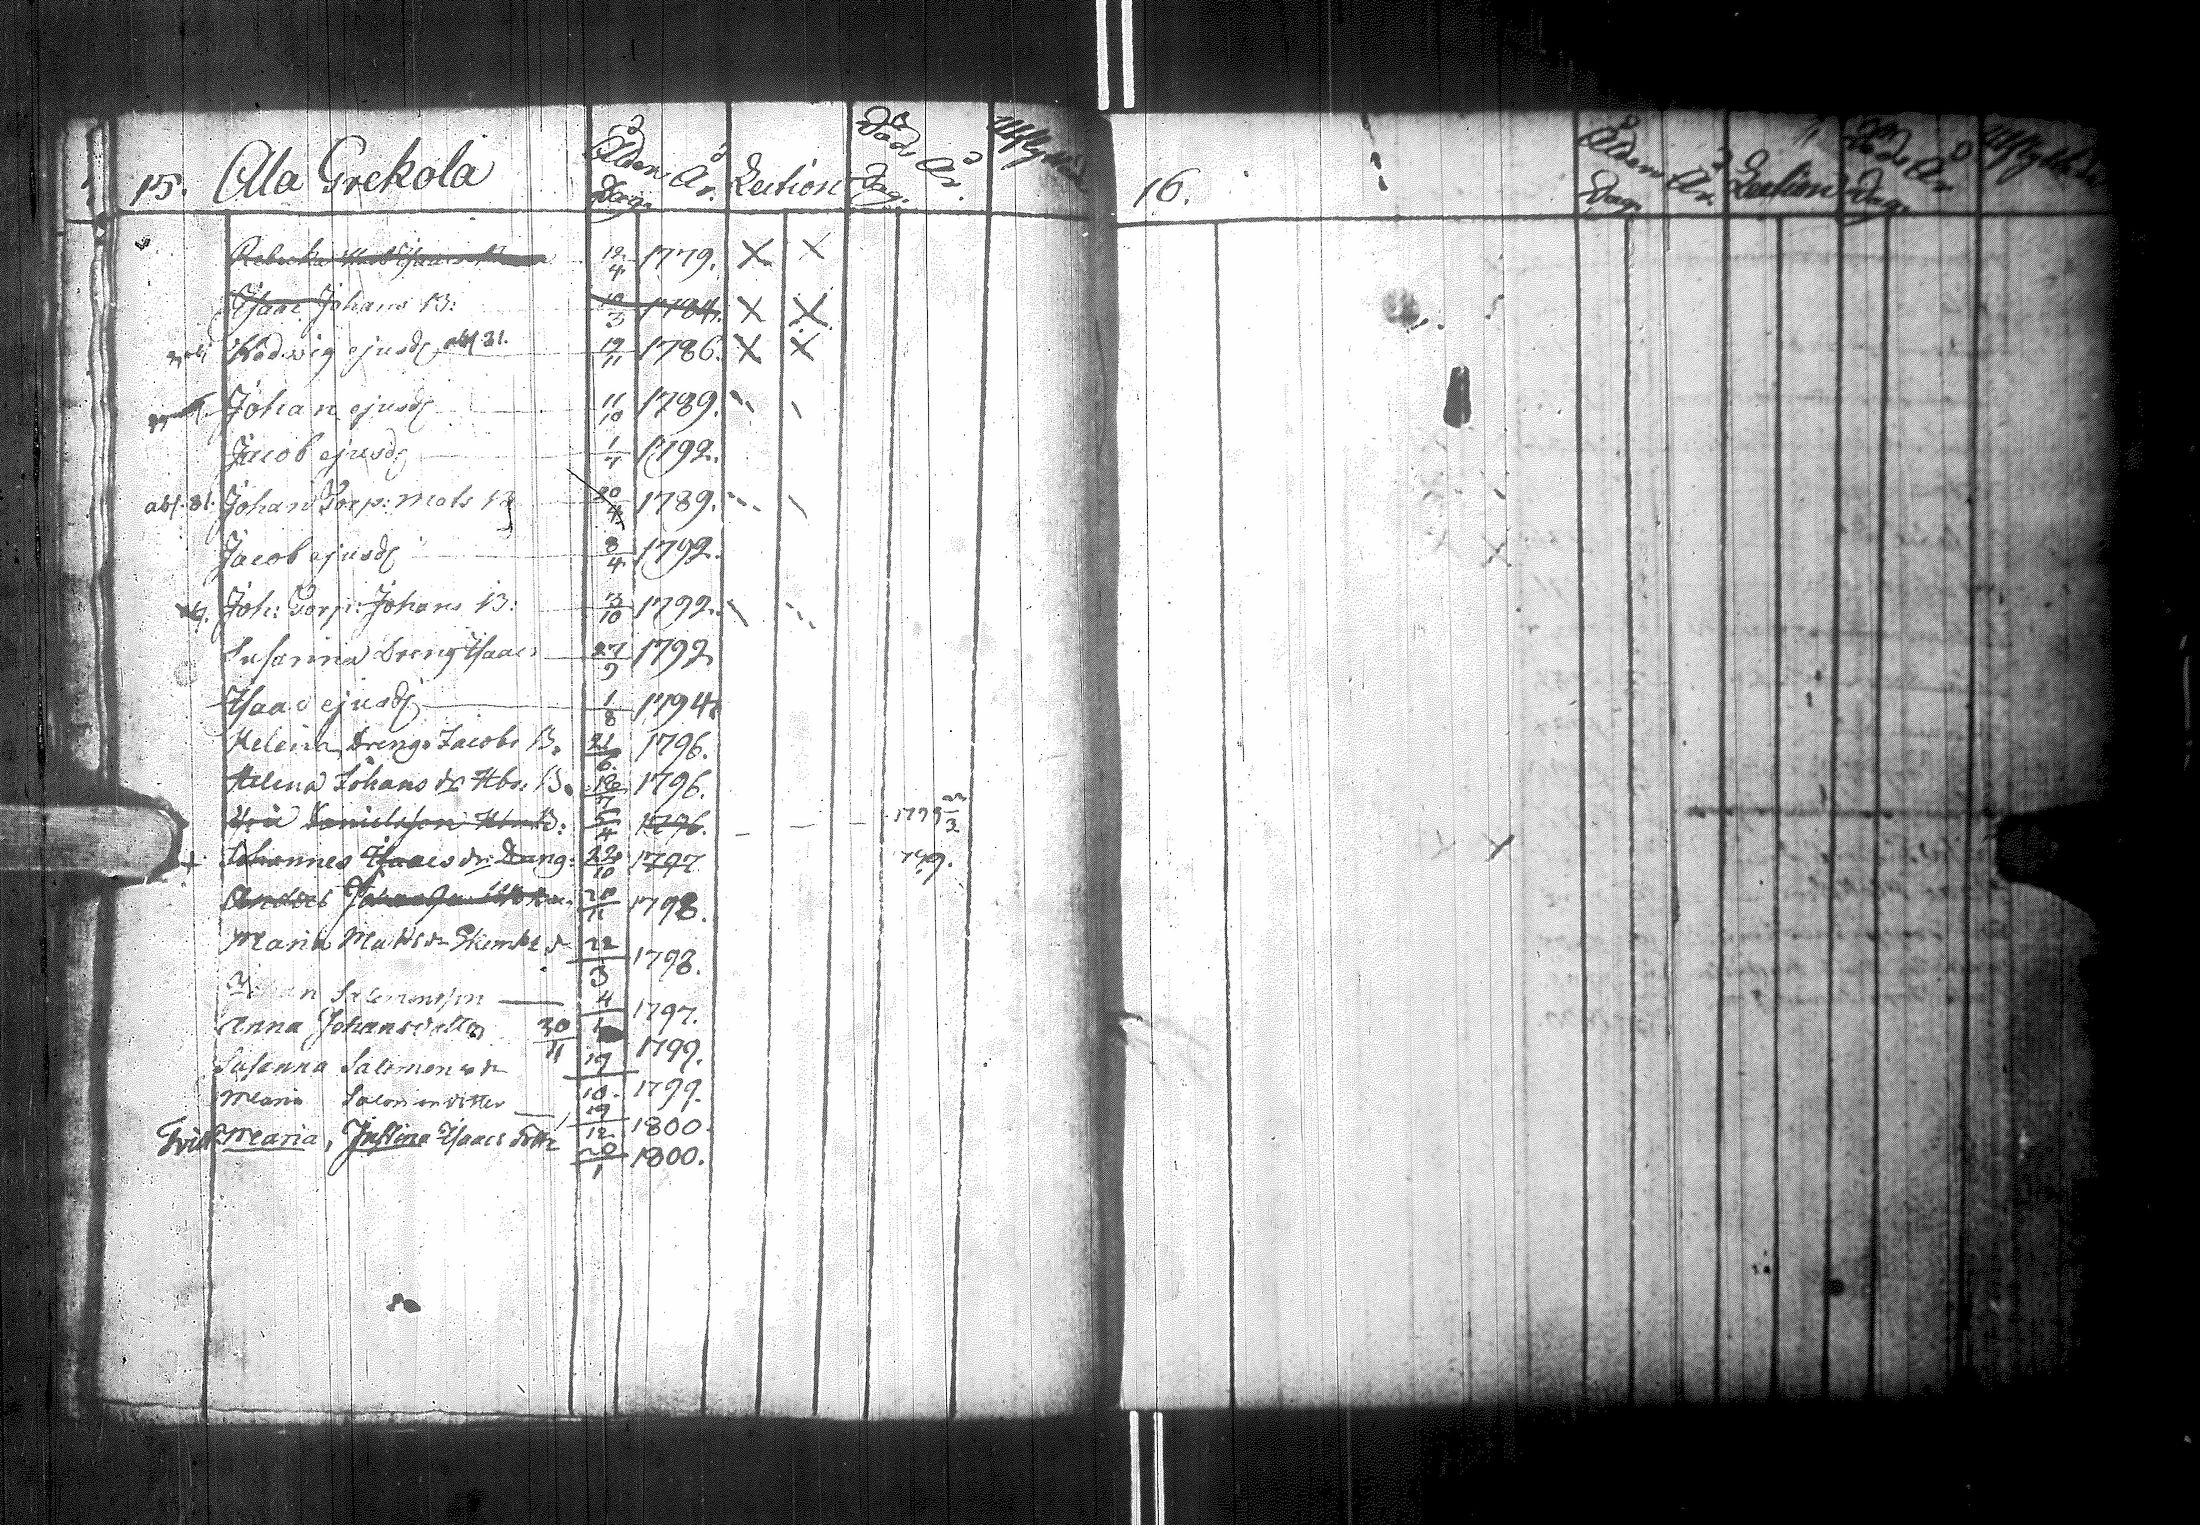 15. Ala Grekola
Ålder Dag. År. Lection Döds Dag. År. Utflyttn
Rebecka 12/4 1779. X X
Isaac Johans B: 10/3 1784. X X
Hedwig ejusd abs. 31. 19/11 1786. X X
Johan ejusd 11/10 1789.
Jacob ejusd 1/7 1792.
abs. 31. Johan Torp: Mats B 20/4 1789.
Jacob ejusd 8/4 1792.
Joh: Torp: Johans B: 13/10 1792.
Susanna Dreng Isaacs 27/9 1792
Isaac ejusd 1/8 1794.
Helena Drengs Jacobs B. 21/6. 1796.
Helena Johans dr Hbs. B. 18/7 1796.
Danielsson B: 5/4 1796. 1799 3
+ Johannes Isaacs dr Dreng: 22/10 1797 799.
Anders 28/11 1798.
Maria Mats dr 22/3 1798.
Salomonsson 4/1 1797.
Anna Johansdotter 30/11 1799.
Susanna Salomons dr 17/10. 1799.
Maria Salomondotter 19/12 1800.
Maria, Justina Isaacs dotter 20/1 1800.
16.
Ålder Dag. År. Lection Döds Dag. År. Utflyttn